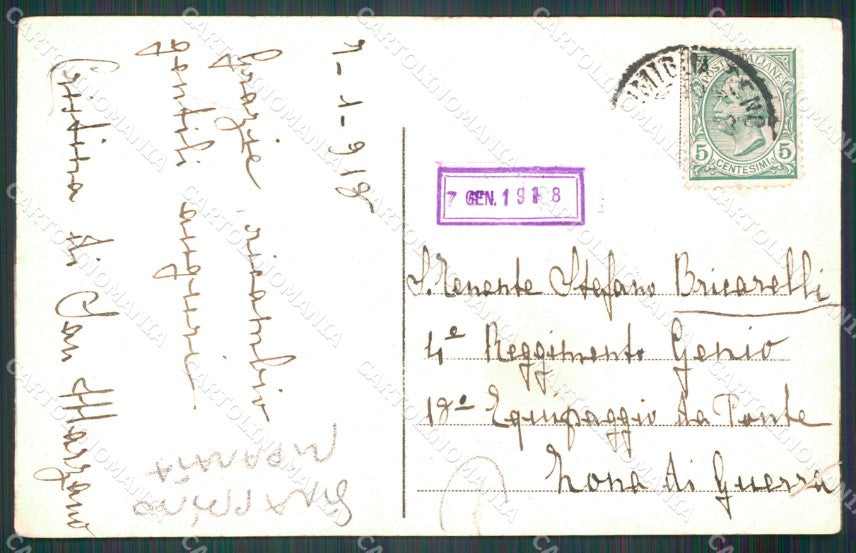 7-1-918
Grazie, ricambio
gentili auguri
di San Marzano
7 GEN. 1918
5 5
CENTESIMI
S. Tenente Stefano Bricarelli
4° Reggimento Genio
18ª Equipaggio da Ponte
Zona di Guerra
CARTOLINOMANIA